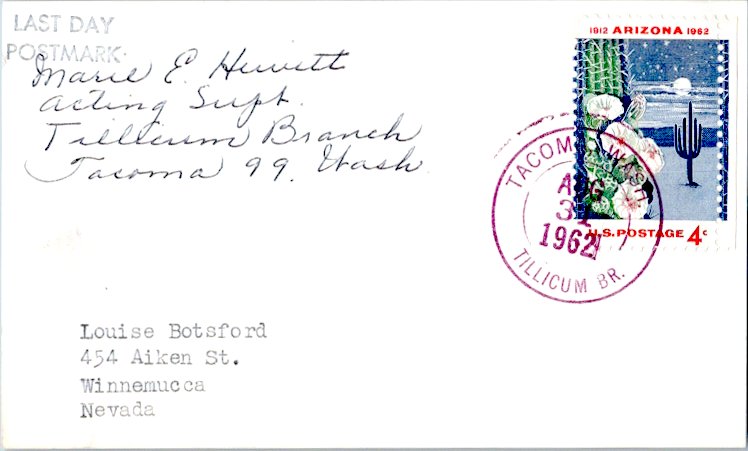 LAST DAY
POSTMARK
Marie E. Hewett
Acting Supt.
Tillicum Branch
Tacoma 99, Wash
1912 ARIZONA 1962
U.S. POSTAGE 4c
TACOMA, WASH
AUG
31
1962
TILLICUM BR.
Louise Botsford
454 Aiken St.
Winnemucca
Nevada